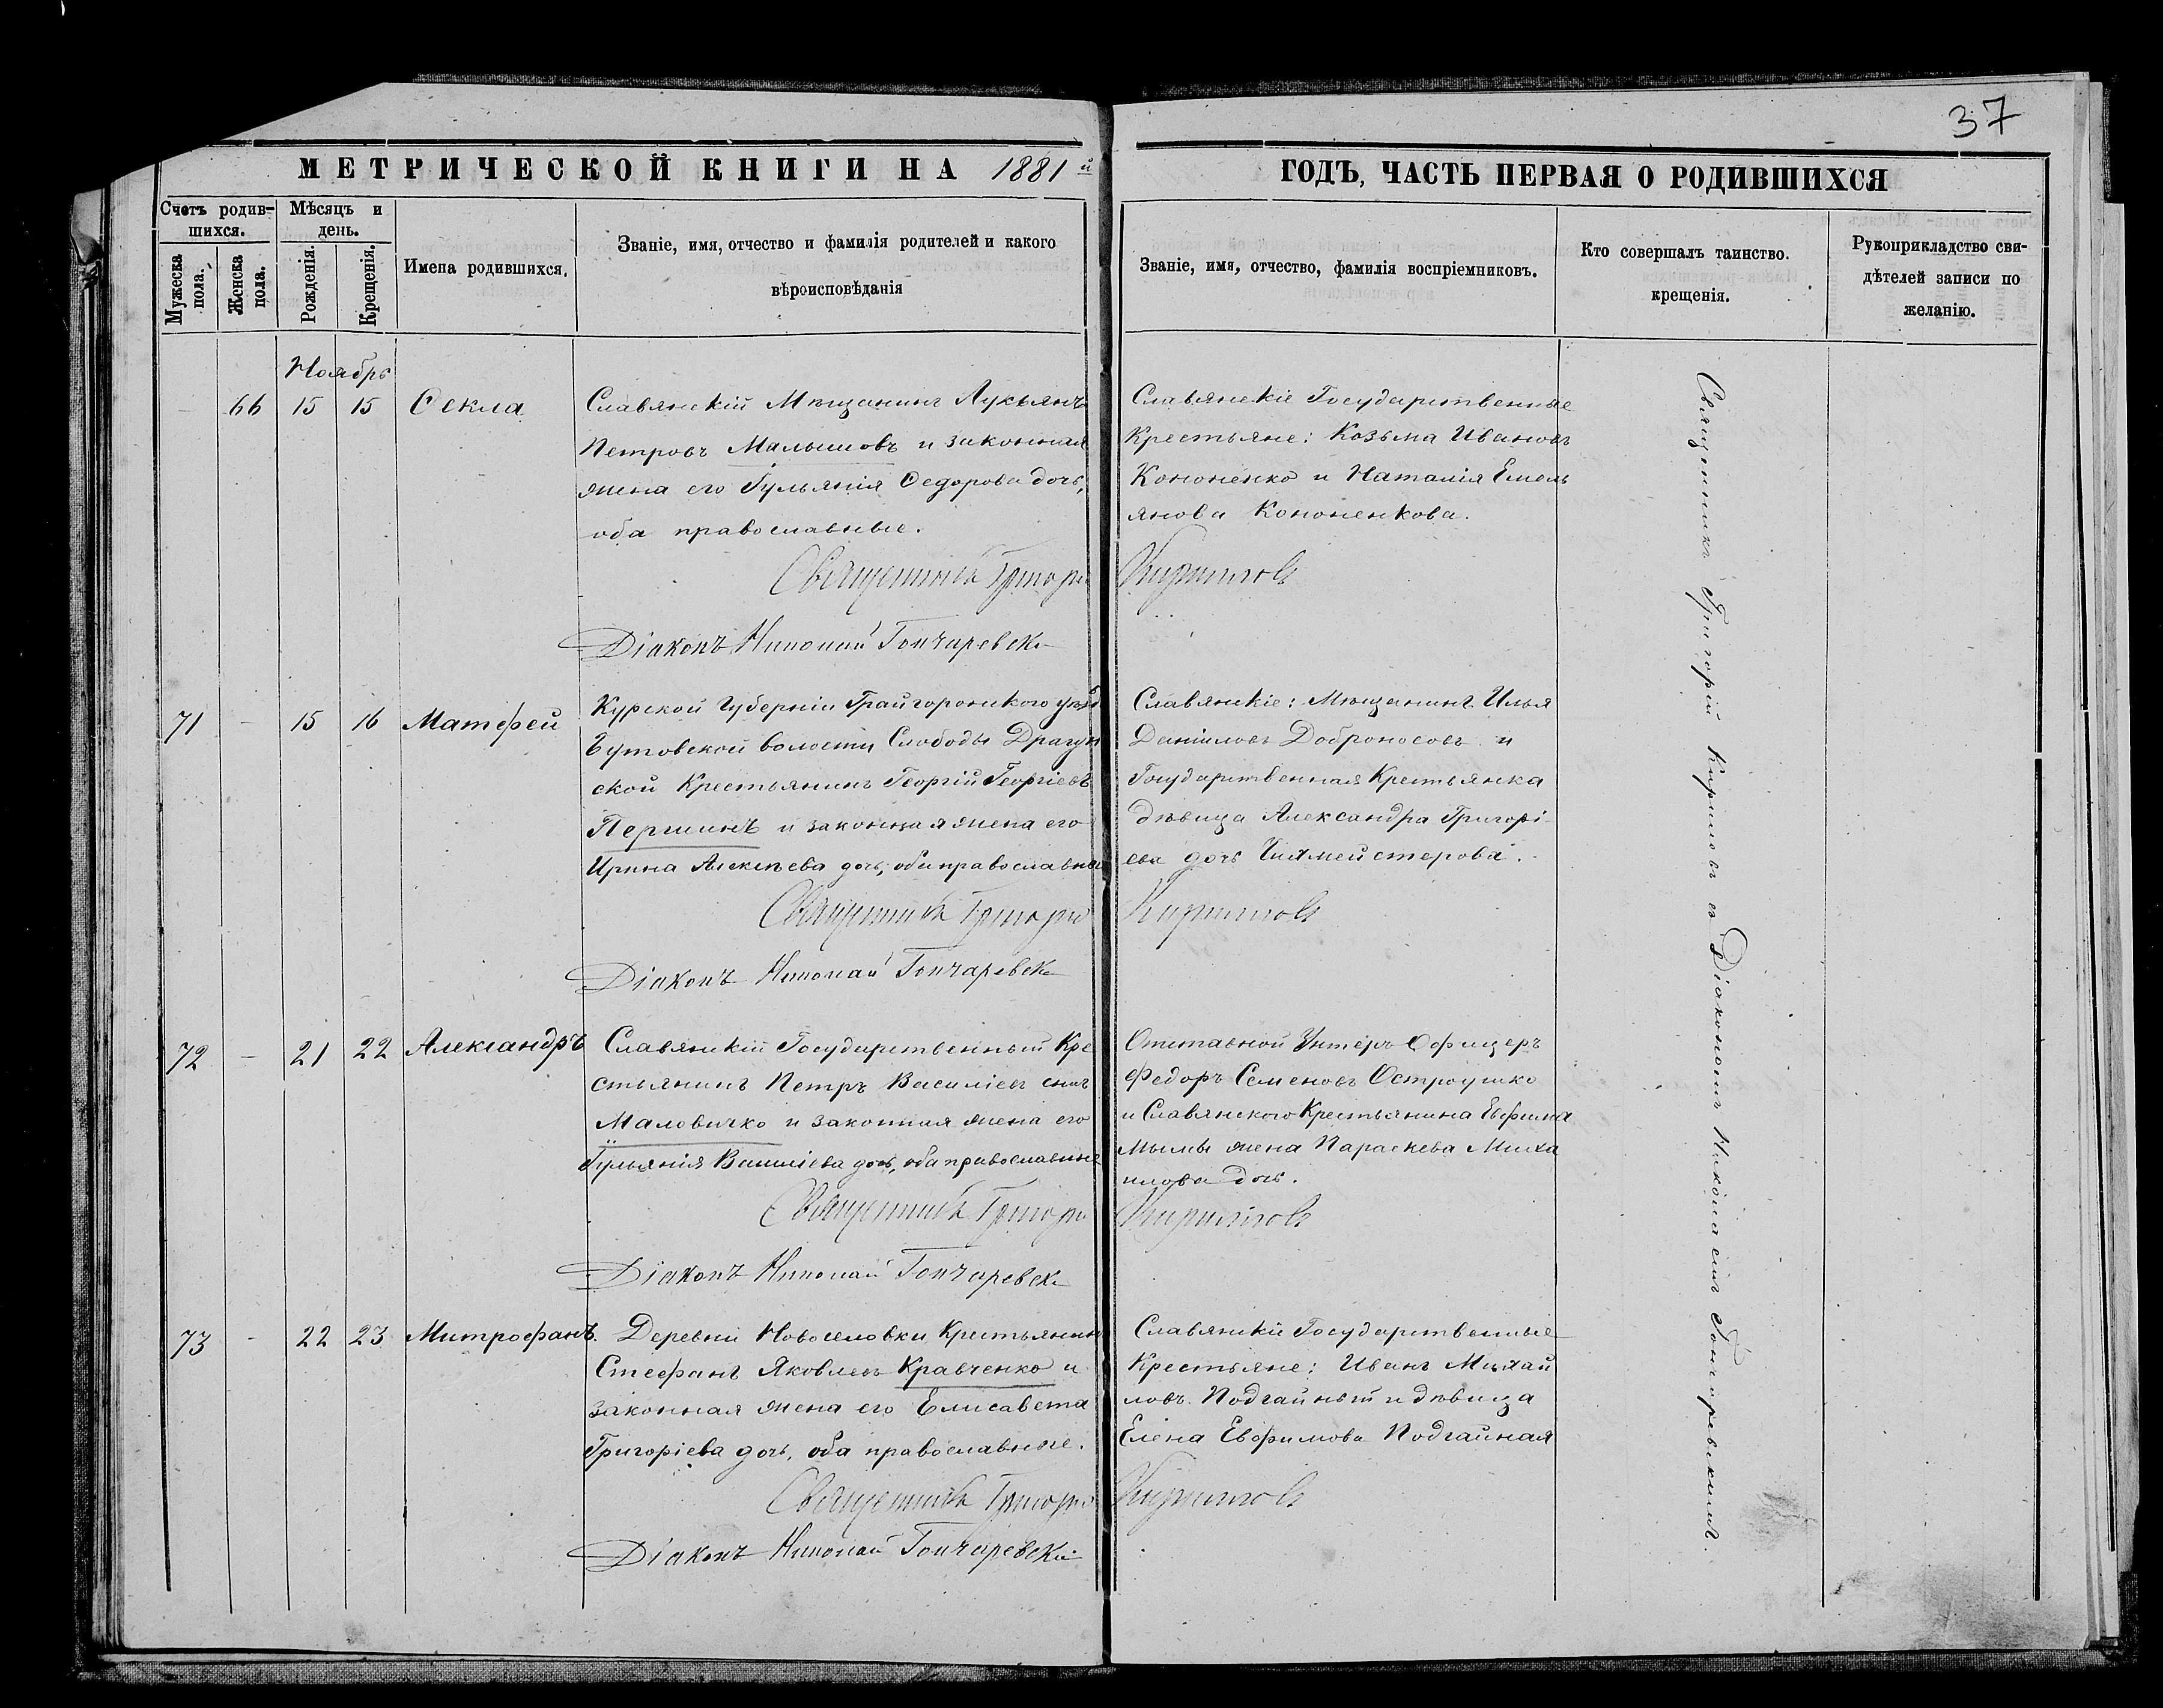 37
МЕТРИЧЕСКОЙ КНИГИ НА 1881й
ГОДЪ, ЧАСТЬ ПЕРВАЯ О РОДИВШИХСЯ
Счетъ родив-
шихся.
Мужеска
пола.
Женска
пола.
Мѣсяцъ и
день.
Рожденія.
Крещенія.
Имена родившихся.
Званіе, имя, отчество и фамилія родителей и какого
вѣроисповѣданія
Званіе, имя, отчество, фамилія воспріемниковъ.
Кто совершалъ таинство.
крещенія.
Рукоприкладство сви-
дѣтелей записи по
желанію.
Ноябрь
66 15 15 Ѳекла
Славянскій Мѣщанинъ Лукьянъ
Петровъ Малышовъ и законная
жена его Іульянія Ѳедорова дочь,
оба православные.
Славянскіе Государственные
Крестьяне: Козьма Ивановъ
Кононенко и Наталія Емель
янова Кононенкова.
Священникъ Григорій Кириловъ
Діаконъ Николай Гончаревскі
71 - 15 16 Матѳей
Курской Губерніи Грайворонского уѣзд
Бутовской волости Слободы Драгун
ской Крестьянинъ Георгій Георгіевъ
Першинъ и законная жена его
Ирина Алексѣева дочь, оба православные
Славянскіе: Мѣщанинъ Илья
Даниловъ Доброносовъ и
Государственная Крестьянка
дѣвица Александра Григорі
ева дочь
Священникъ Григорій Кириловъ
Діаконъ Николай Гончаревск
72 - 21 22 Александръ
Славянскій Государственный Кре
стьянинъ Петръ Василіевъ сынъ
Маловичко и законная жена его
Іульянія Василіева дочь, оба православные
Отставной Унтеръ Офицеръ
Федоръ Семеновъ Остроушко
и Славянского Крестьянина Евфима
Мымы жена Параскева Миха
илова дочь.
Священникъ Григорій Кириловъ
Діаконъ Николай Гончаревск
73 - 22 23 Митрофанъ.
Деревни Новоселовки Крестьянин
Стефанъ Яковлевъ Кравченко и
законная жена его Елисавета
Григоріева дочь, оба православные.
Славянскіе Государственные
Крестьяне: Иванъ Михай
ловъ Подгайный и дѣвица
Елена Евфимова Подгайная
Священникъ Григорій Кириловъ
Діаконъ Николай Гончаревскій
Священникъ Григорій Кириловъ съ Діакономъ Николаемъ Гончаревскимъ.